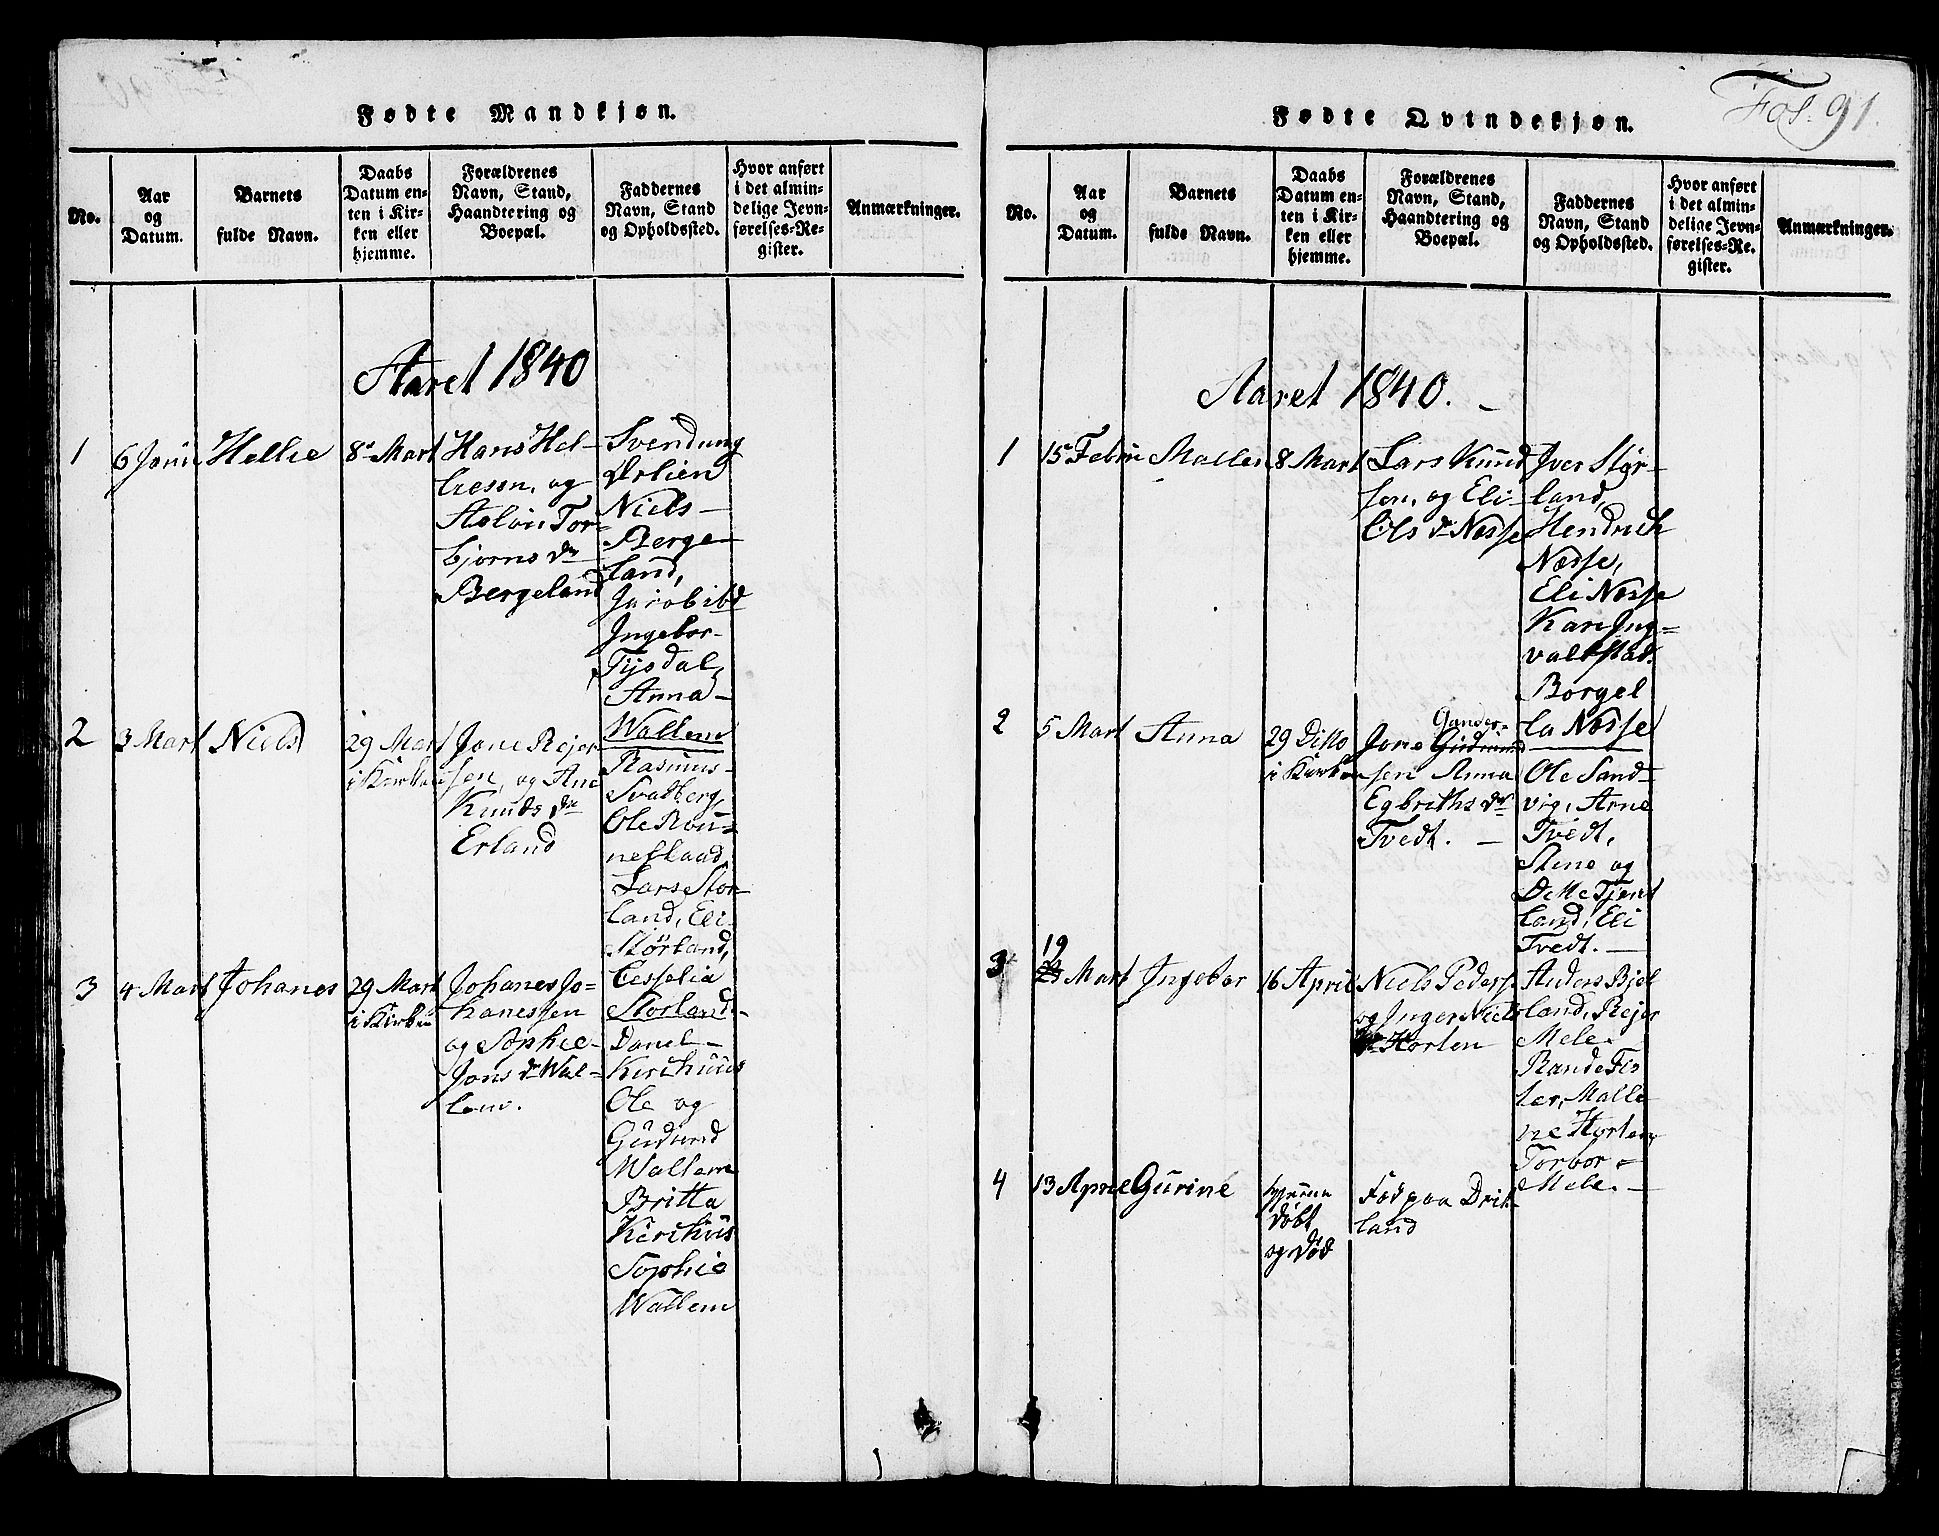 Fødte Mandkjøn.
No.
Aar
og
Datum.
Barnets
fulde Navn.
Daabs
Datum en-
ten i Kir-
ken eller
hjemme.
Forældrenes
Navn, Stand,
Haandtering og
Boepæl.
Faddernes
Navn, Stand
og Opholdssted.
Hvor anført
i det almin-
delige Jevn-
førelses-Re-
gister.
Anmærkninger.
Aaret 1840
1
6 Janu
Hellie
8de Mart
Hans Hel-
liesen, og
Aslau Tor-
bjørns dr
Bergeland
Svendung
Østien
Niels
Berge
land,
Jacob ibd
Ingebor
Tysdal,
Anna
Wallem
2
3 Mart
Niels
29 Mart
i Kirken
Jone Rejer
sen, og Ane
Knuds dr
Erland
Rasmus
Svadberg,
Ole Rou-
neflaad,
Lars Stør-
land, Eli
Størland,
Cesselia
Størland
3
4 Mart
Johanes
29 Mart
i Kirken
Johanes Jo-
hanessen
og Sophie
Jons dr Wal-
lem.
Danel
Kirkhuus
Ole og
Gudund
Wallem
Britta
Kirkhuus
Sophie
Wallem
Fol. 91.
Fødte Qvindekjøn.
No.
Aar
og
Datum.
Barnets
fulde Navn.
Daabs
Datum en-
ten i Kir-
ken eller
hjemme.
Forældrenes
Navn, Stand,
Haandtering og
Boepæl.
Faddernes
Navn, Stand
og Opholdssted.
Hvor anført
i det almin-
delige Jevn-
førelses-Re-
gister.
Anmærkninger.
Aaret 1840.
1
15 Febru
Malle
8 Mart
Lars Knud
sen, og Eli
Ols dr Nesse
Iver Stør-
land,
Hendrick
Nesse,
Eli Nesse
Kari Ing-
valdstad
Borgel
la Nesse
2
5 Mart
Anna
29 Ditto
i Kirken
Jone Gunder-
sen Anna
Egbriths dr
Tvedt.
Ole Sand-
vig, Arne
Tvedt,
Stine og
Ditte Tjent
land, Eli
Tvedt.
3
19
Mart
Ingebor
16 April
Niels Peders
og Inger Niels
dr Horten
Anders Bjel
land, Rejer
Mele
Rande Fis
ler, Malle
ne Horten,
Torbor
Mele.
4
13 April
Gurine
hjemme
døbt
og død
Fød paa Drik
land